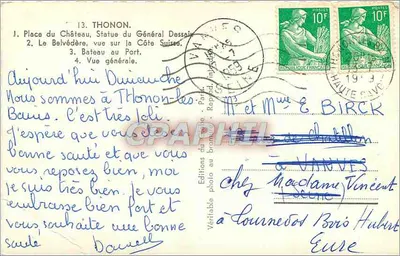 13. THONON.
1. Place du Château, Statue du Général Dessaix
2. Le Belvédère, vue sur la Côte Suisse.
3. Bateau au Port.
4. Vue générale.
Aujourd'hui Dimanche
Nous sommes à Thonon-les-
Bains. C'est très joli
j'espère que vous êtes en
bonne santé et que vous
vous reposez bien, moi
je suis très bien. Je vous
embrasse bien fort et
vous souhaite une bonne
santé
Editions du
Véritable photo au bromure - Rep
VANVES
SEINE
10F
10F
HAUTE SAVOIE
M et Mme E. BIRCK
à VANVES
Seine
chez Madame Vincent
à Tournedos Bois Hubert
Eure
CPAPHIL.COM